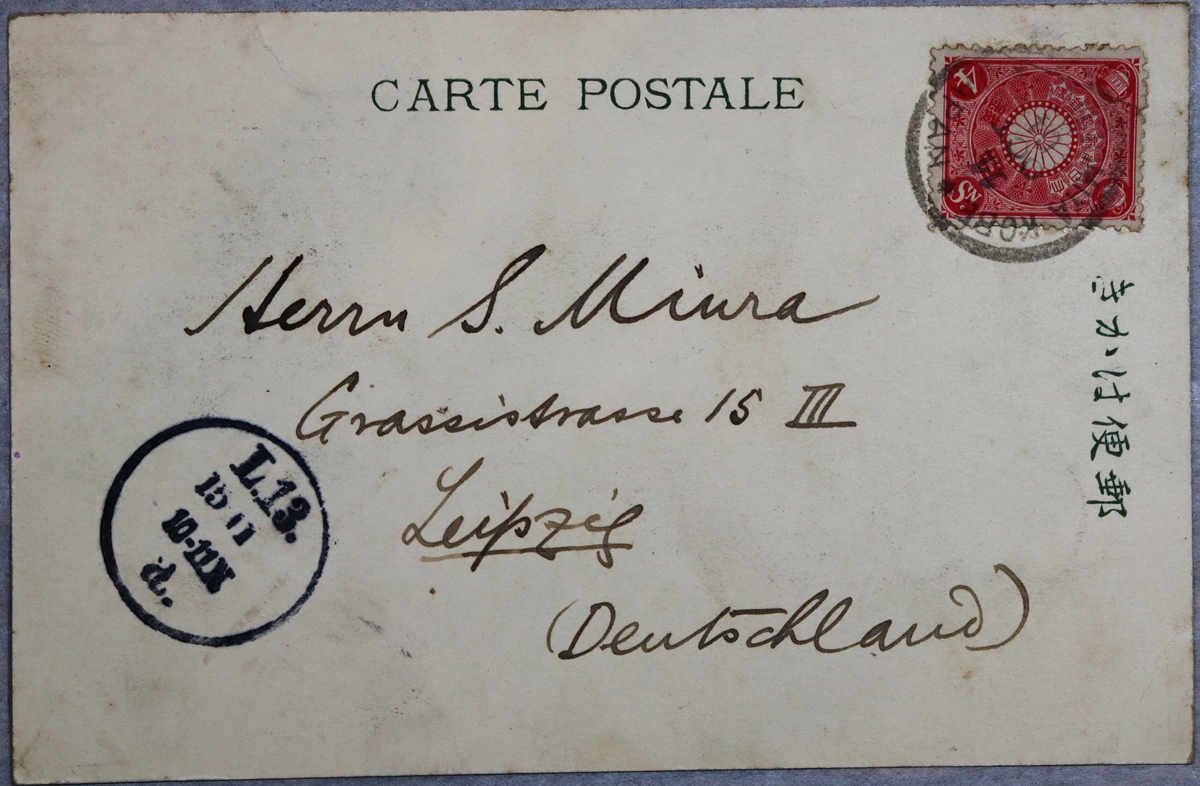 CARTE POSTALE
4
SN
KOBE
郵便はかき
Herrn S. Miura
Grassistrasse 15 III
Leipzig
(Deutschland)
L.13.
10-11N
d.